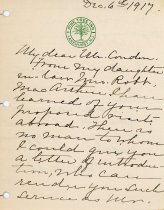 Dec. 6th 1917.
My dear Mr. Condon.
From my daughter
in-law Mrs. Robt.
Mac Arthur I have
learned of your
proposed visit
abroad. There is
no man to whom
I could give you
a letter of introduc
tion, who can
render you such
service as Mr.